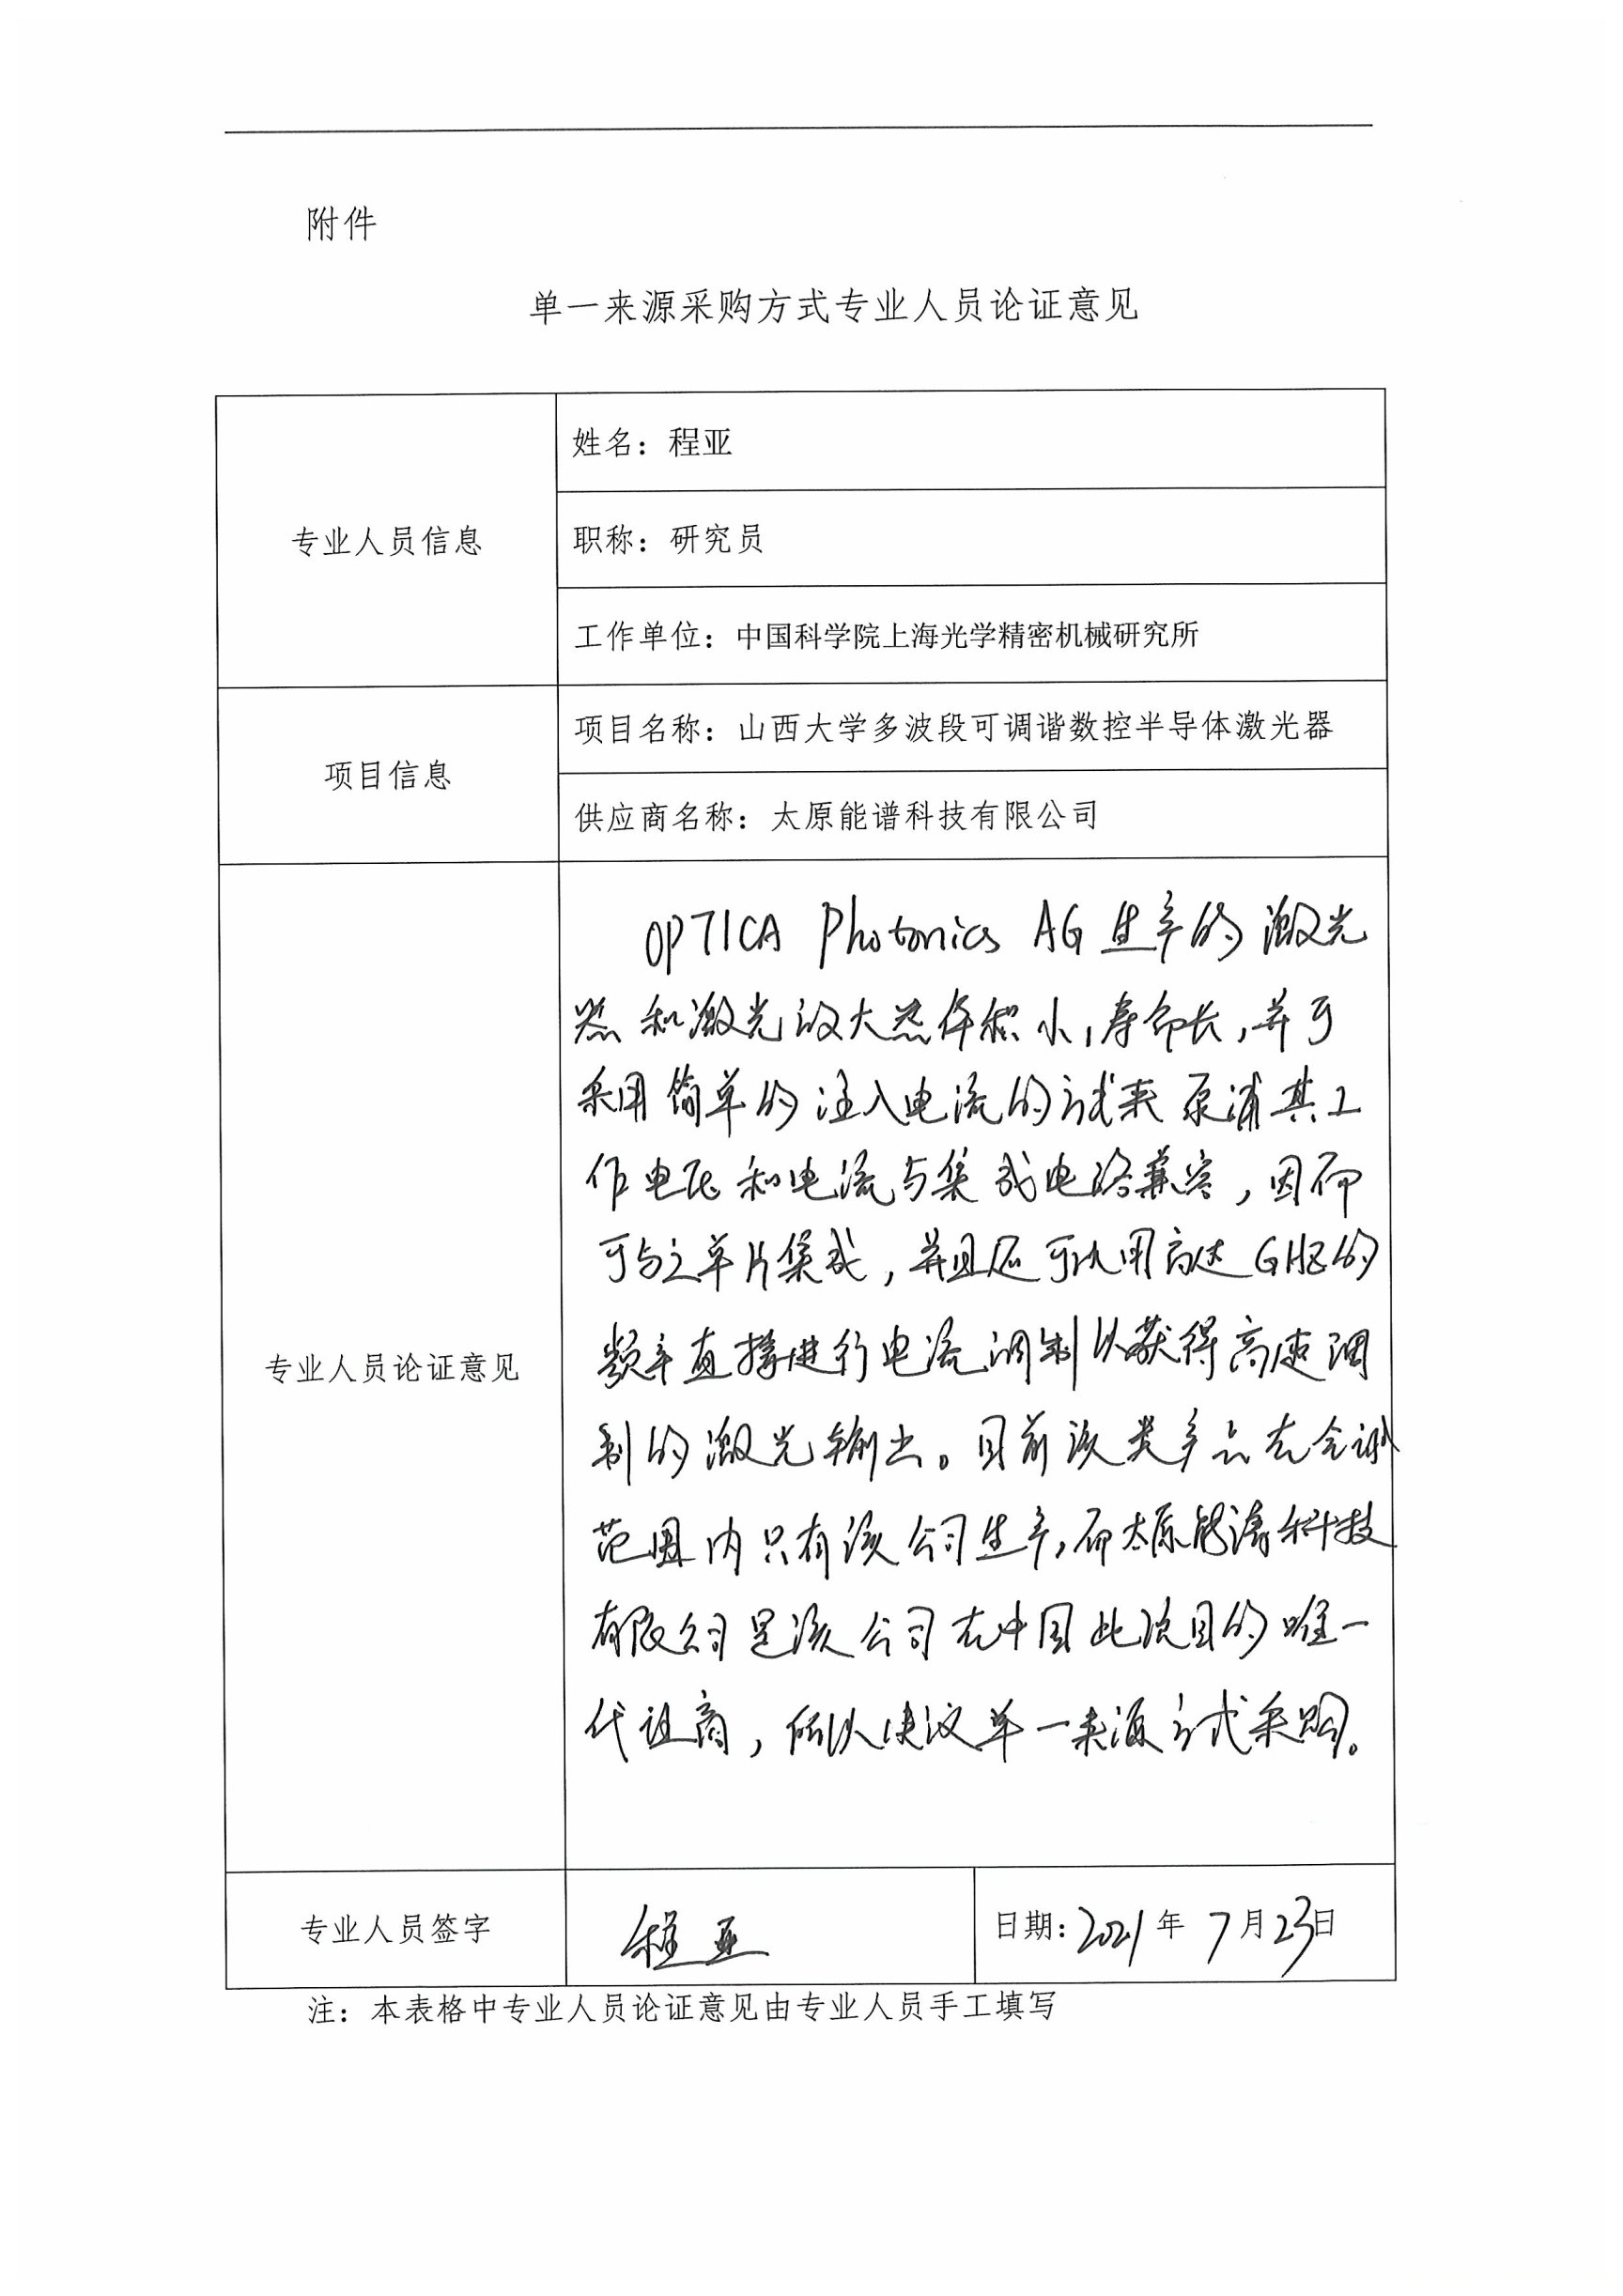 附件
单一来源采购方式专业人员论证意见
专业人员信息
姓名：程亚
职称：研究员
工作单位：中国科学院上海光学精密机械研究所
项目信息
项目名称：山西大学多波段可调谐数控半导体激光器
供应商名称：太原能谱科技有限公司
专业人员论证意见
OPTICA Photonics AG 生产的激光
器和激光放大器体积小,寿命长,并可
采用简单的注入电流的方式来泵浦其工
作电压和电流与集成电路兼容,因而
可与之单片集成,并且还可以用高达GHz的
频率直接进行电流调制以获得高速调
制的激光输出。目前该类产品在全球
范围内只有该公司生产,而太原能谱科技
有限公司是该公司在中国此项目的唯一
代理商,所以建议单一来源方式采购。
专业人员签字
程亚
日期:2021年7月23日
注：本表格中专业人员论证意见由专业人员手工填写